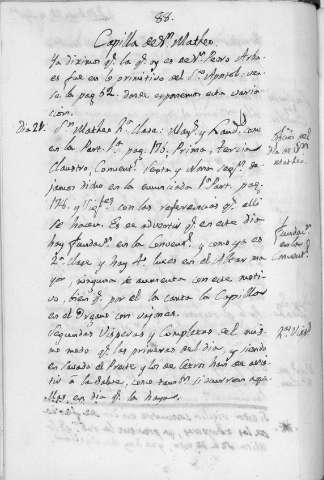 88.
Capilla de Sn. Matheo.
Ya diximos q. la q. oy es de Sn. Pedro Arbu
es fue en lo primitivo del Sto. Apostol: vea
se la pag. 62. donde exponemos esta varia
cion.
Dia 21. Sn. Matheo 2a. clase: May. y Laud. como
en la Part. 1a. pag. 175. Prima, tercia
Claustro, Convent. Sexta y Nona seg. de
jamos dicho en la enunciada 1a. Part. pag.
174. y con las referencias q. alli
se hacen. Es de advertir q. en este dia
hay fundaon. en la Convent. y como ya es
2a. clase y hay 4o. luces en el Altar ma
yor, ninguna se aumenta con este moti
vo, bien q. por el la canta la Capilla
en el Organo con
Segundas Visperas y Completas del mis
mo modo q. las primeras del dia y siendo
en Savado el Preste y los de Cetros han de asis
tir a la Salve, como tambn. si ocurriere
en dia q. la haya.
Oficios del
dia de Sn.
Matheo.
fundaon.
en la
Convent.
2as. Visps.